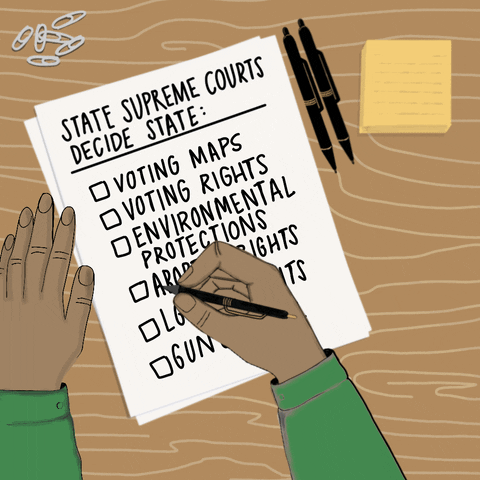 STATE SUPREME COURTS
DECIDE STATE:
VOTING MAPS
VOTING RIGHTS
ENVIRONMENTAL
PROTECTIONS
RIGHTS
GUN